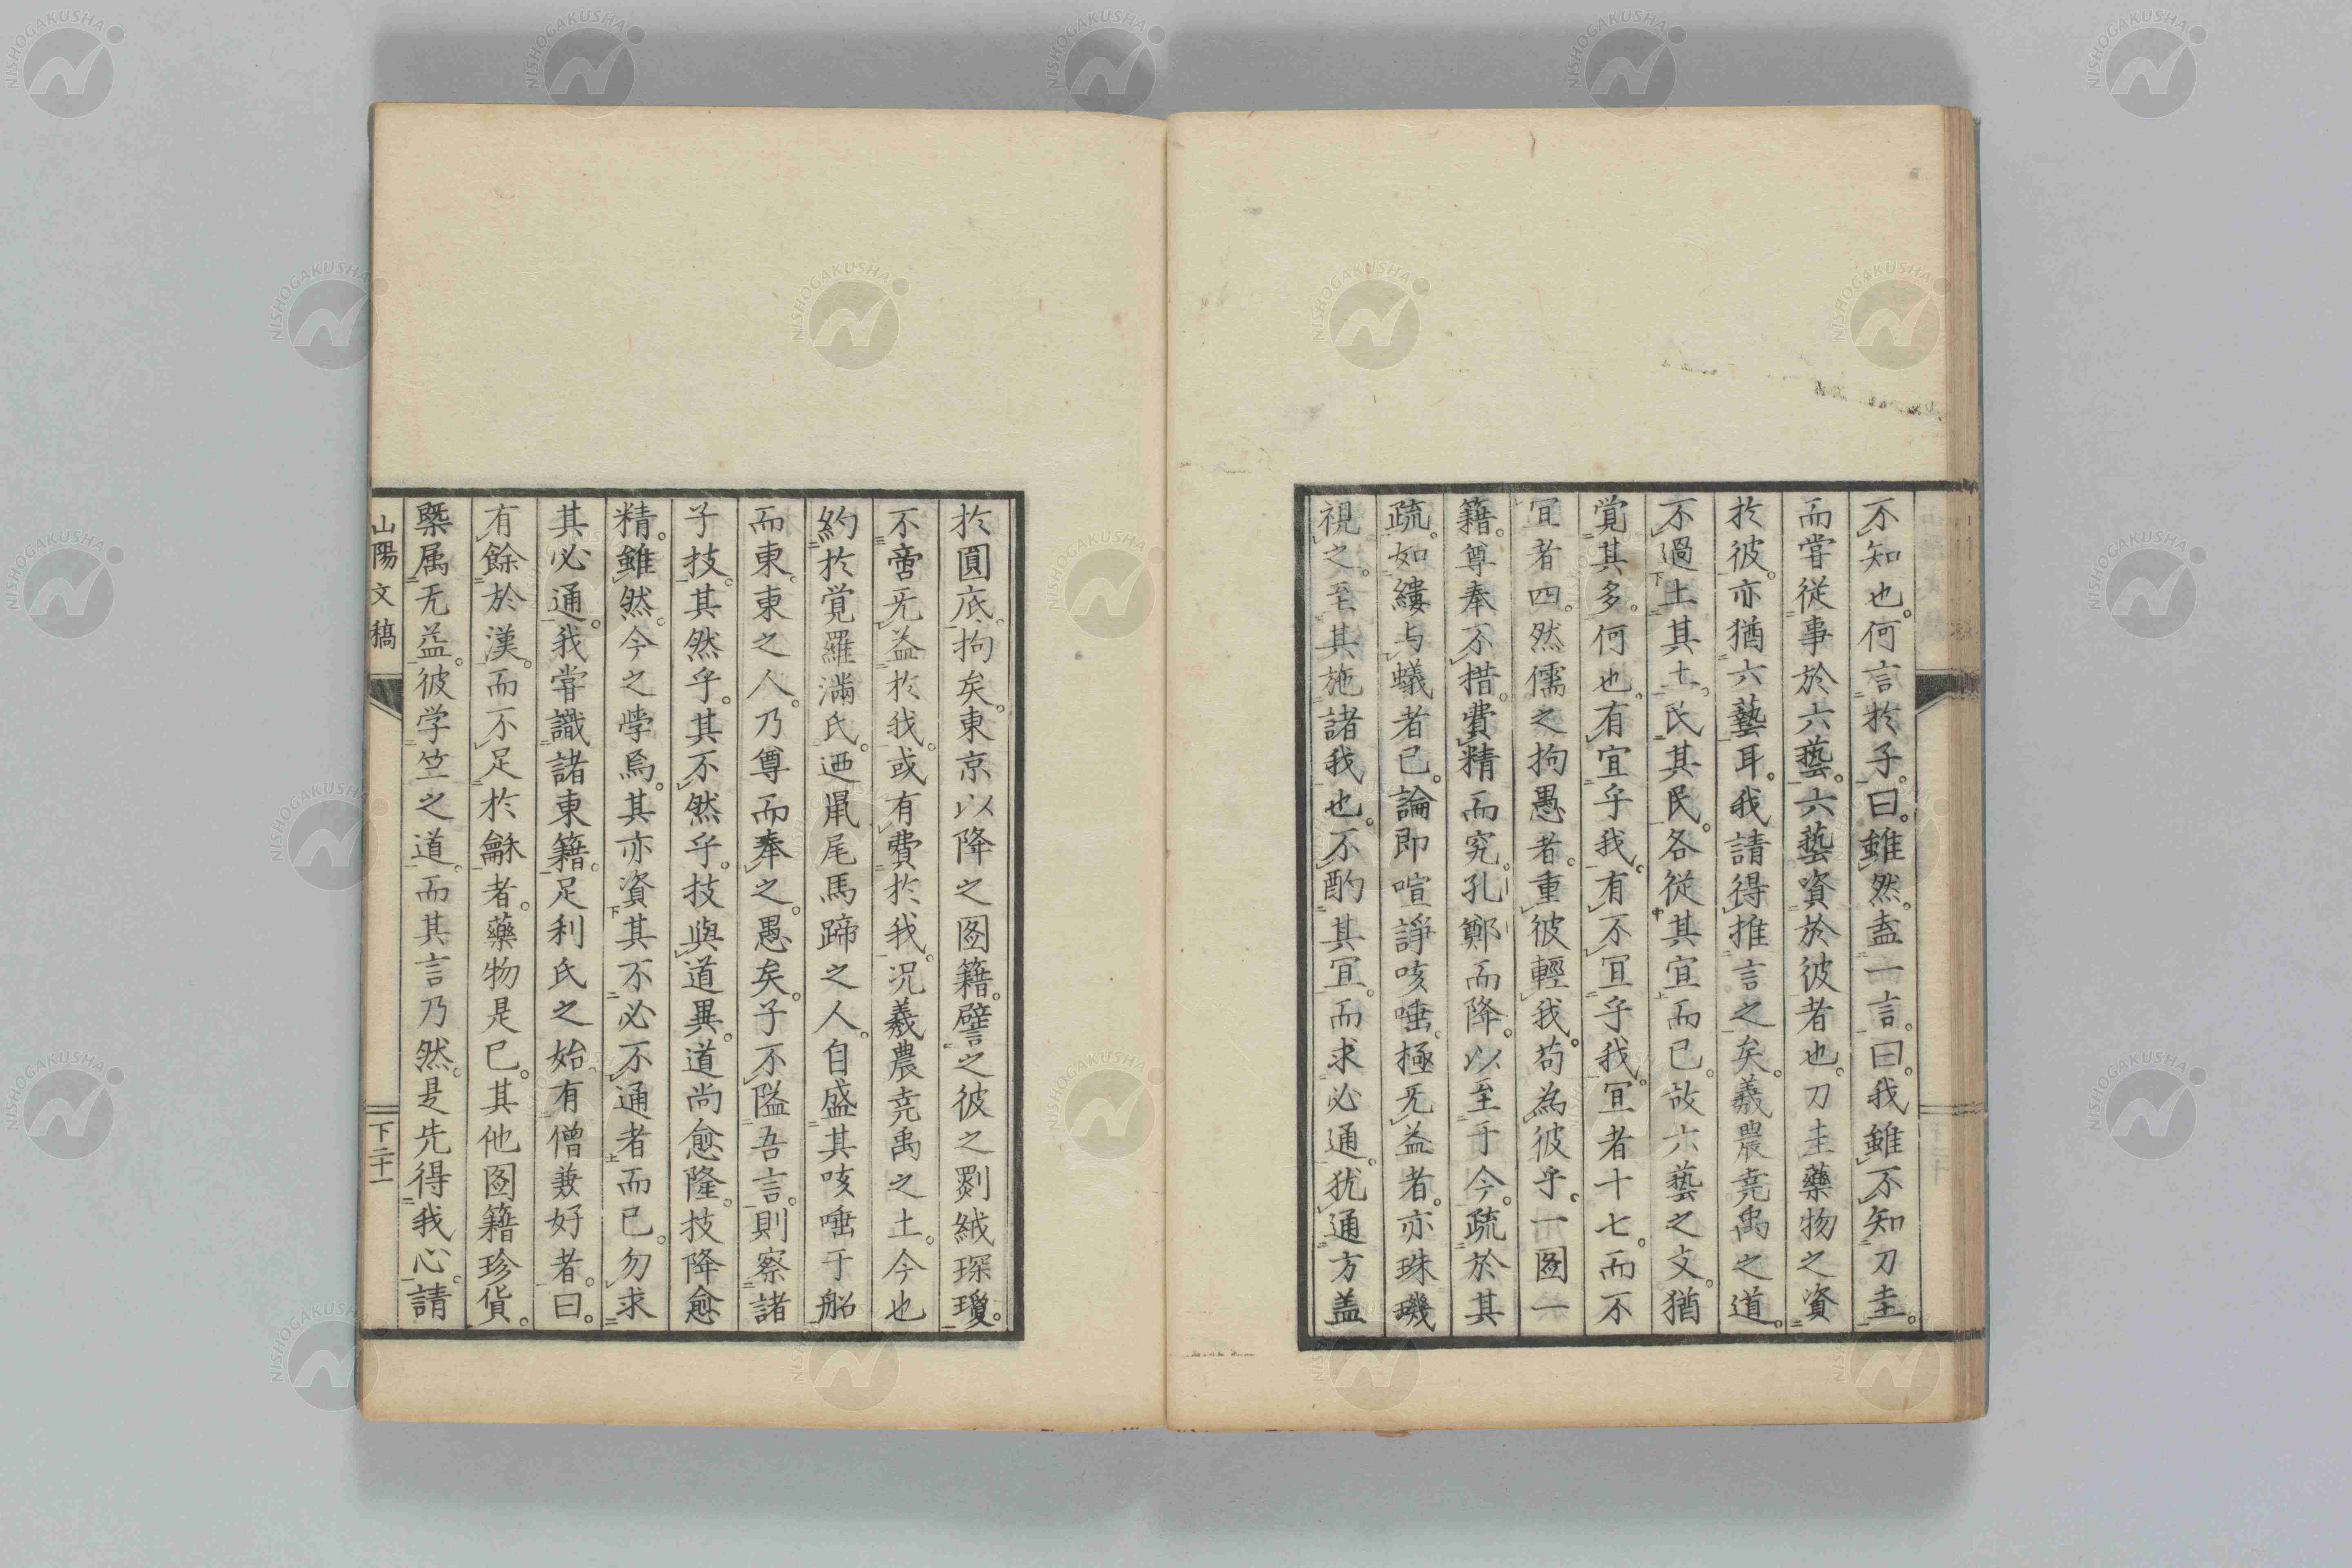 不知也。何言於子。曰。雖然。盍一言。曰。我雖不知刀圭。
而嘗從事於六藝。六藝資於彼者也。刀圭藥物之資
於彼。亦猶六藝耳。我請得推言之矣。羲農堯禹之道。
不過土其土。民其民。各從其宜而已。故六藝之文。猶
覚其多。何也。有宜乎我。有不宜乎我。宜者十七。而不
宜者四。然儒之拘愚者。重彼輕我。苟為彼乎。一圖一
籍。尊奉不措。費精而究。孔鄭而降。以至于今。疏於其
疏。如縷与蟻者已。論即喧諍咳唾。極无益者。亦珠璣
視之。至其施諸我也。不酌其宜。而求必通。犹通方盖
於圓底。拘矣。東京以降之圖籍。譬之彼之罽絨琛瓊。
不啻无益於我。或有費於我。况羲農堯禹之土。今也
約於覚羅滿氏。迺鼠尾馬蹄之人。自盛其咳唾于船
而東。東之人。乃尊而奉之。愚矣。子不隘吾言。則察諸
子技。其然乎。其不然乎。技與道異。道尚愈隆。技降愈
精。雖然。今之學焉。其亦資其不必不通者而已。勿求
其必通。我嘗識諸東籍。足利氏之始。有僧兼好者。曰。
有餘於漢。而不足於龢者。藥物是已。其他圖籍珍貨。
槩属无益。彼学竺之道。而其言乃然。是先得我心。請
山陽文稿
下二十一
NISHOGAKUSHA